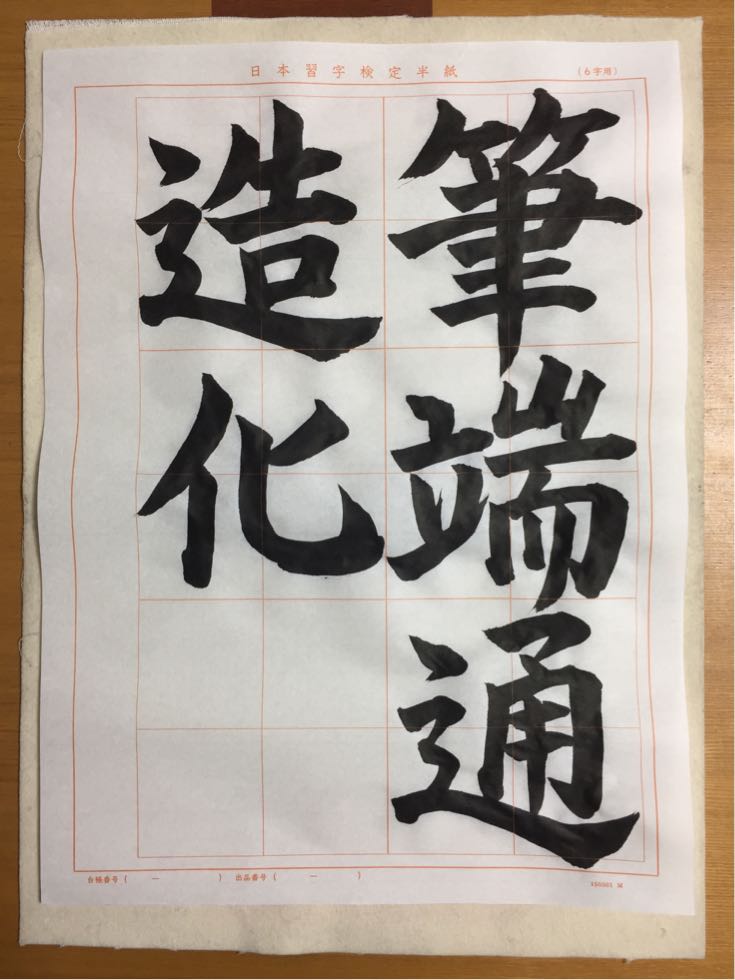 日本習字検定半紙
(6字用)
筆端通
造化
台帳番号( ー ) 出品番号( ー )